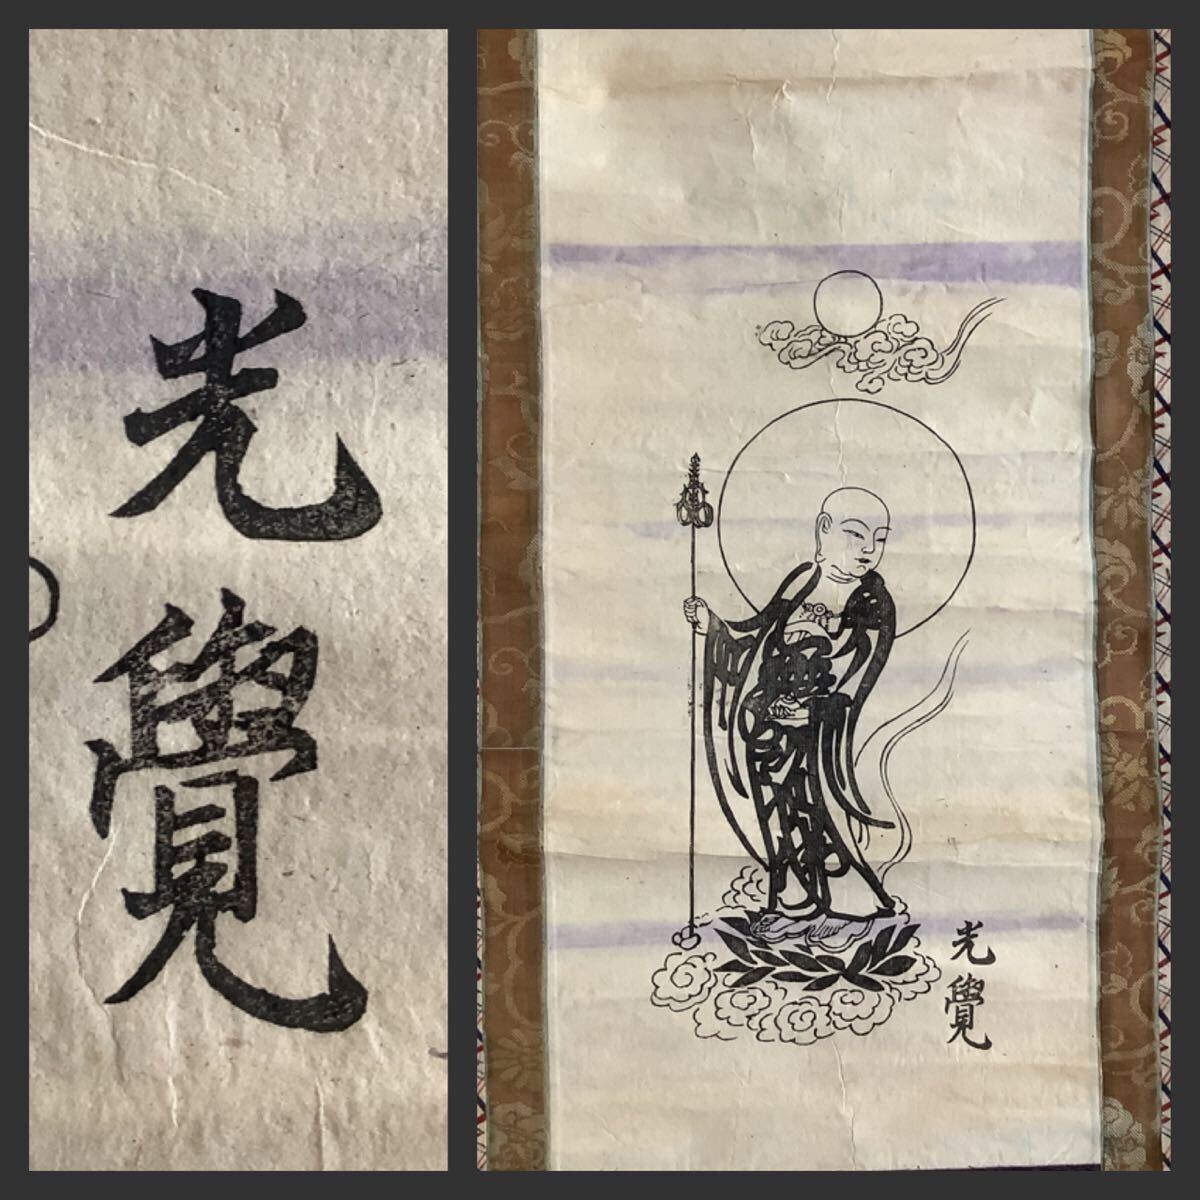 光覺
光覺